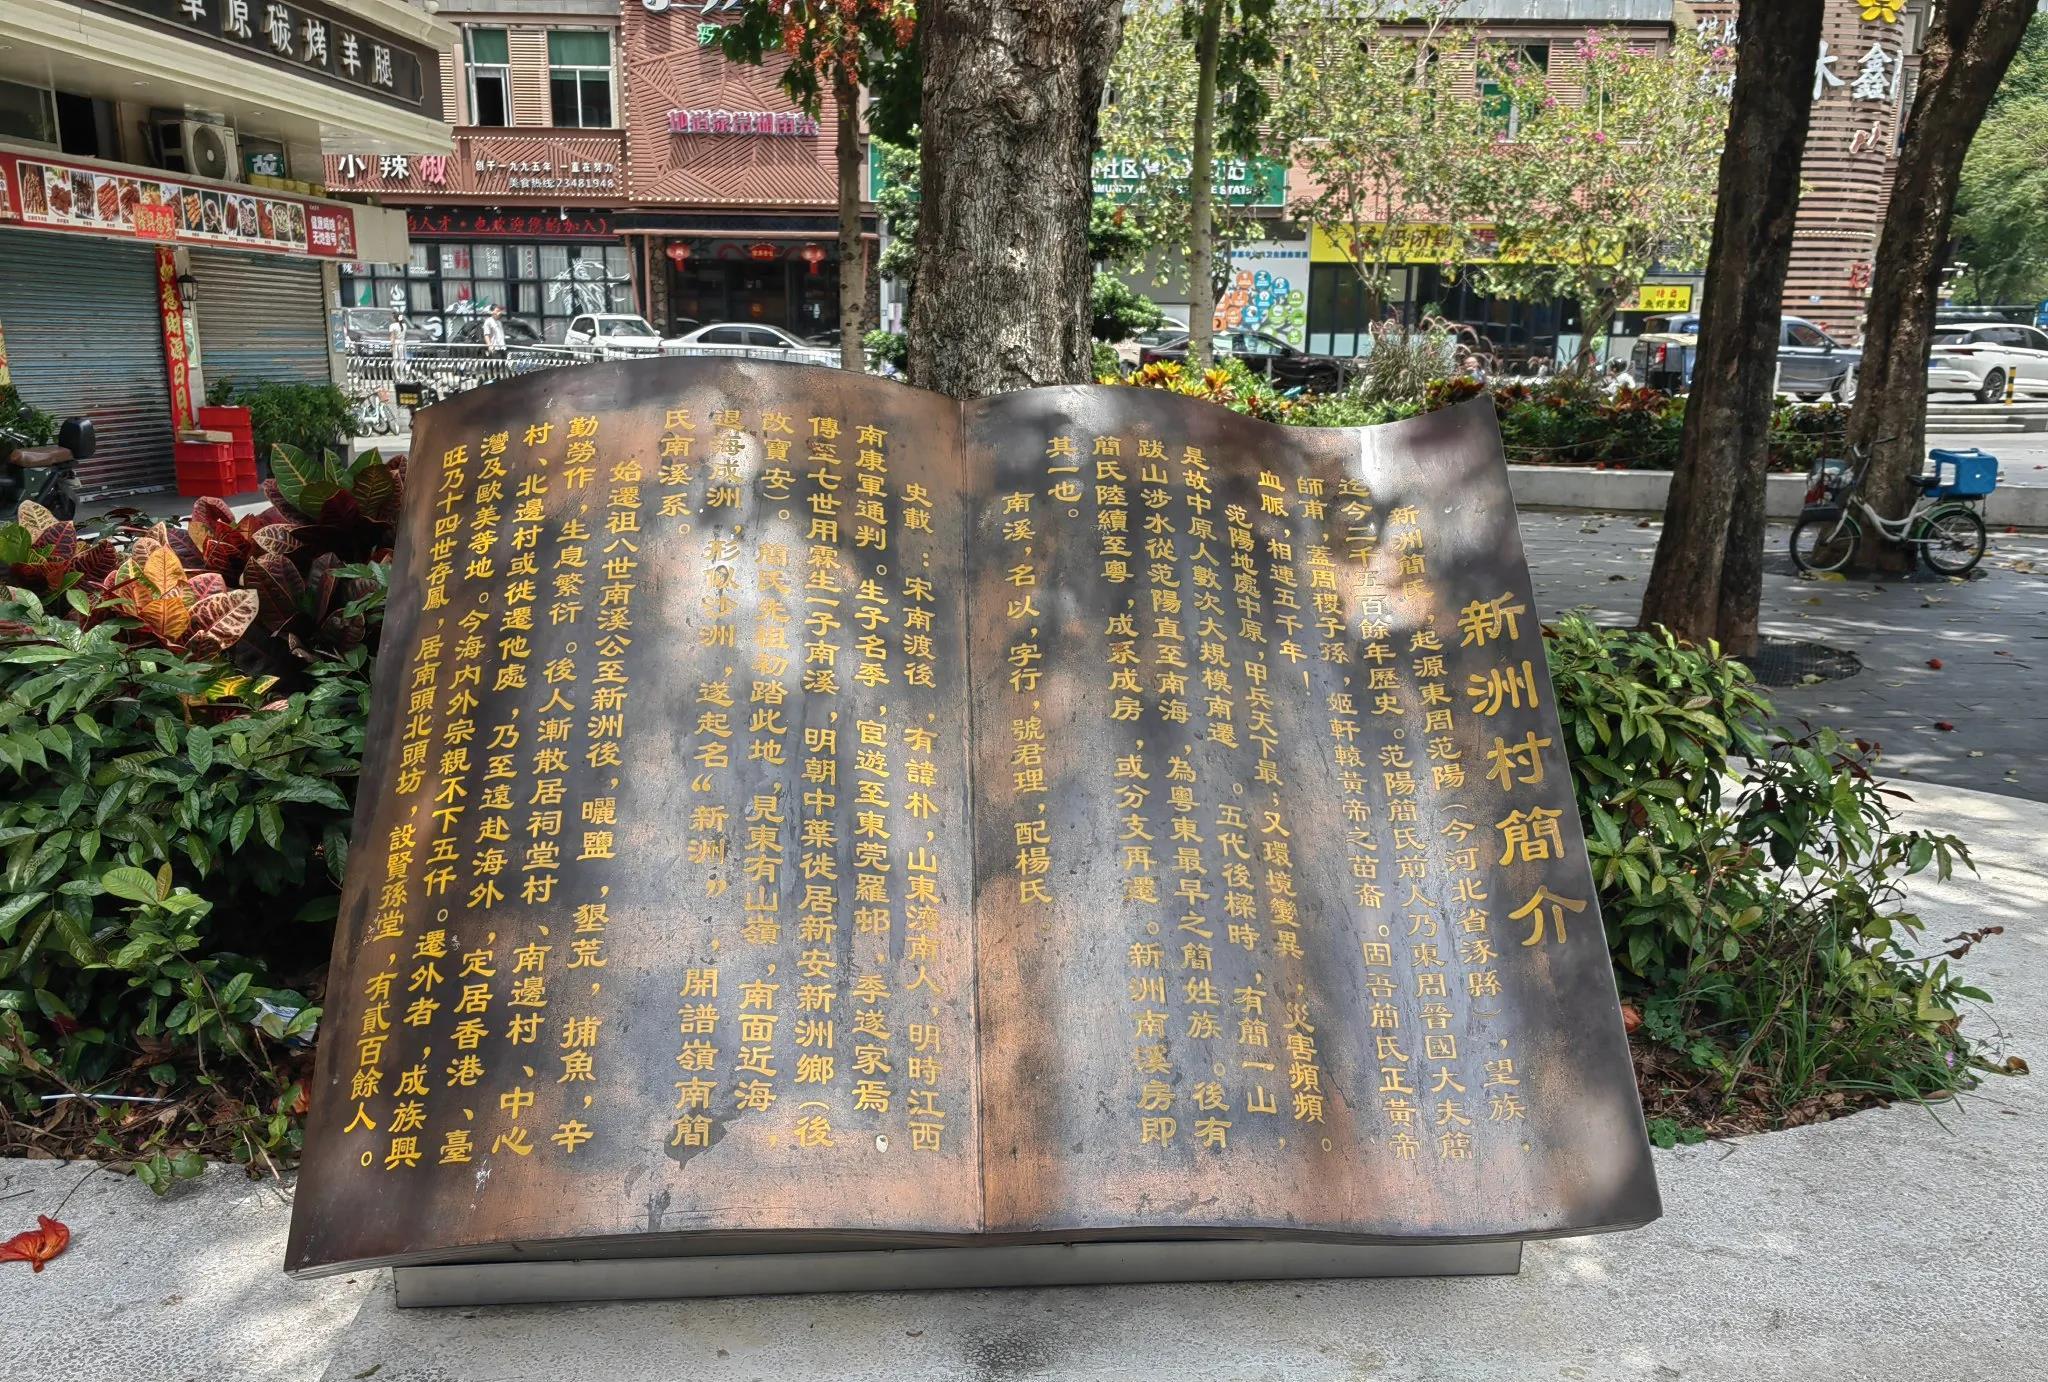 新洲村簡介
新洲簡氏，起源東周范陽（今河北省涿縣），望族，
迄今二千五百餘年歷史。范陽簡氏前人乃東周晉國大夫簡
師甫，蓋周稷子孫，姬軒轅黃帝之苗裔。固吾簡氏正黃帝
血脈，相連五千年！
范陽地處中原，甲兵天下最，又環境變異，災害頻頻。
是故中原人數次大規模南遷。五代後樑時，有簡一山，
跋山涉水從范陽直至南海，為粵東最早之簡姓族。後有
簡氏陸續至粵，成系成房，或分支再遷。新洲南溪房即
其一也。
南溪，名以，字行，號君理，配楊氏。
史載：宋南渡後，有諱朴，山東濟南人，明時江西
南康軍通判。生子名季，宦遊至東莞羅邨，季遂家焉。
傳至七世用霖生一子南溪，明朝中葉徙居新安新洲鄉（後
改寶安）。簡氏先祖初踏此地，見東有山嶺，南面近海，
退海成洲，形似沙洲，遂起名“新洲”，開譜嶺南簡
氏南溪系。
始遷祖八世南溪公至新洲後，曬鹽，墾荒，捕魚，辛
勤勞作，生息繁衍。後人漸散居祠堂村、南邊村、中心
村、北邊村或徙遷他處，乃至遠赴海外，定居香港、臺
灣及歐美等地。今海內外宗親不下五仟。遷外者，成族興
旺乃十四世存鳳，居南頭北頭坊，設賢孫堂，有貳百餘人。
草原碳烤羊腿
小辣椒
創于一九九五年 一直在努力
美食热线:23481948
地道家常湖南菜
的人才·也欢迎您的加入）
意財源日日